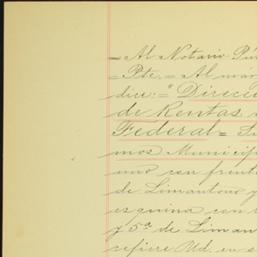 = Al Notario Pú
= Pte. = Al mar
dice: = "Direcc
de Rentas
Federal =
mos Municip
uno con frent
de Limantour y
esquina con
y 5ª de Liman
refiere Ud. en